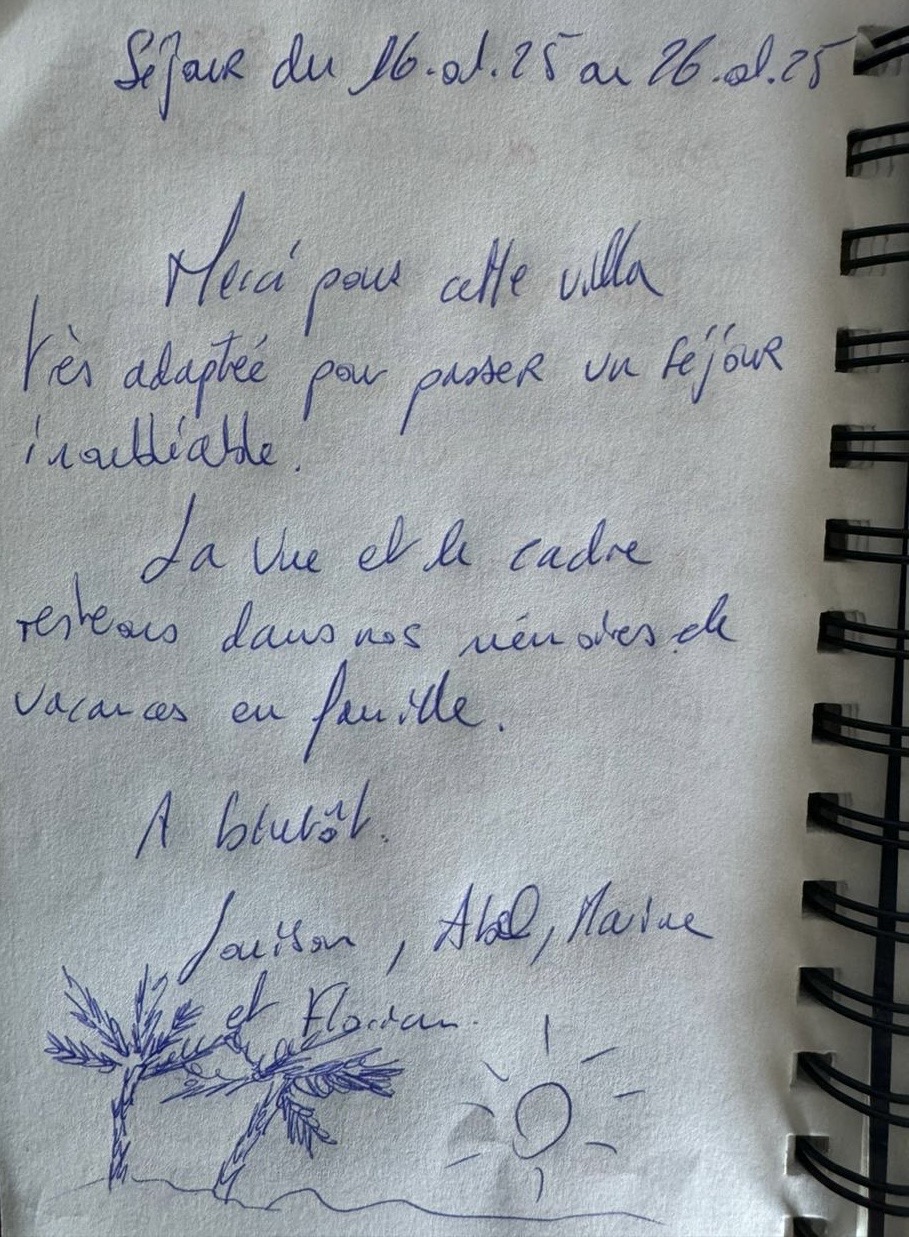 Séjour du 16.01.25 au 26.01.25
Merci pour cette villa
très adaptée pour passer un séjour
inoubliable.
La vue et le cadre
resterons dans nos mémoires de
vacances en famille.
A bientôt.
Louison, Abel, Marine
et Florian.